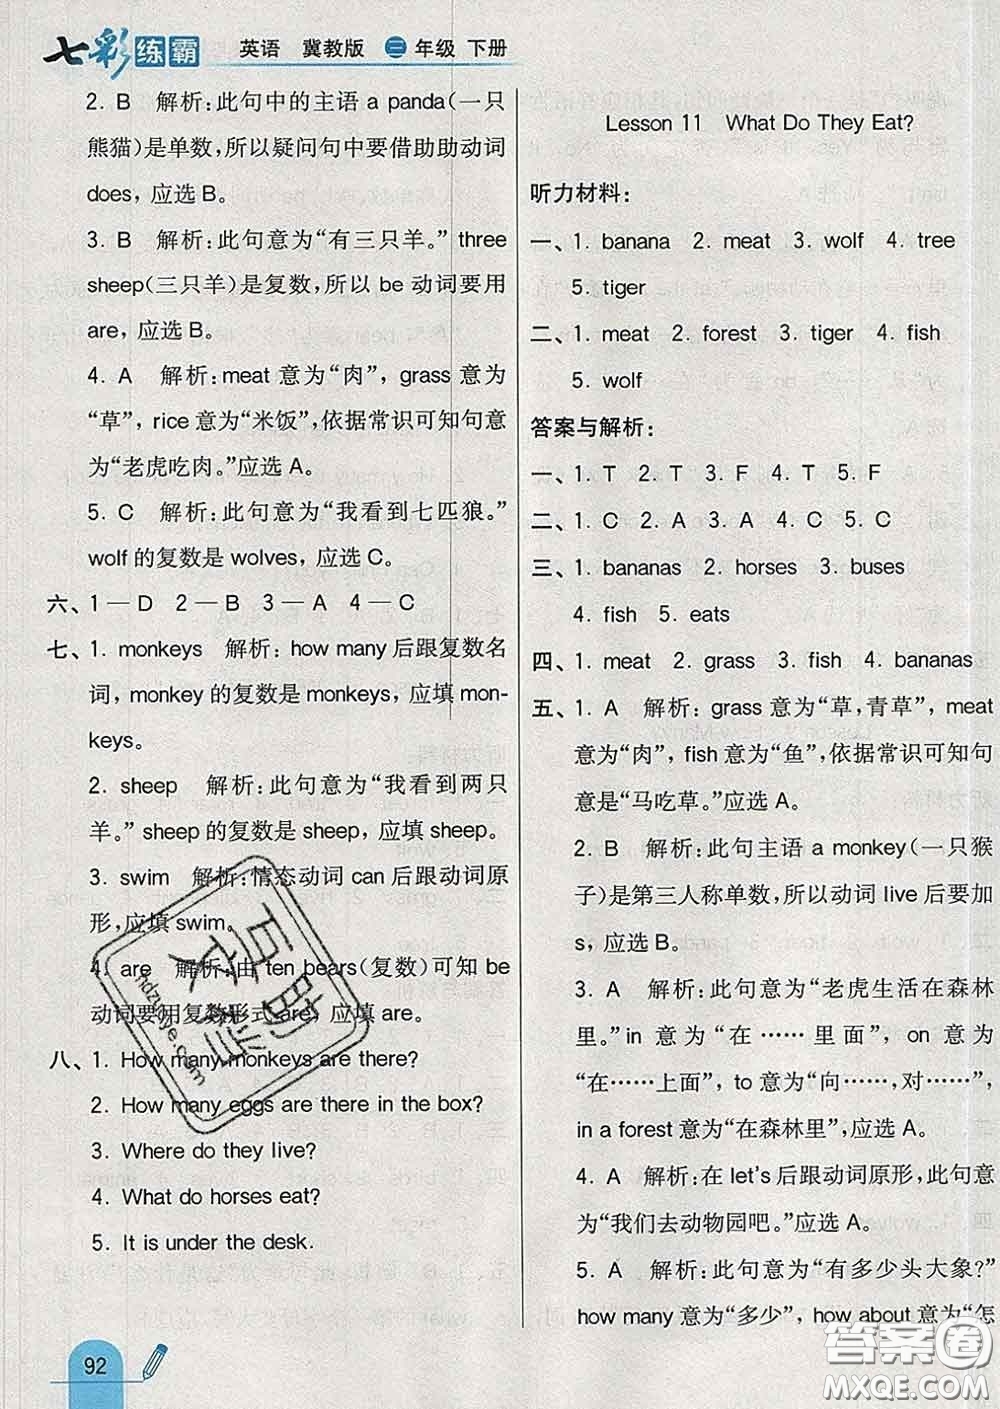 七彩练霸 英语 冀教版 三年级 下册
2. B 解析:此句中的主语 a panda(一只
熊猫)是单数,所以疑问句中要借助助动词
does,应选 B。
3. B 解析:此句意为“有三只羊。” three
sheep(三只羊)是复数,所以 be 动词要用
are,应选 B。
4. A 解析:meat 意为“肉”, grass 意为
“草”, rice 意为“米饭”,依据常识可知句意
为“老虎吃肉。”应选 A。
5. C 解析:此句意为“我看到七匹狼。”
wolf 的复数是 wolves, 应选 C。
六、1—D 2—B 3—A 4—C
七、1. monkeys 解析:how many 后跟复数名
词, monkey 的复数是 monkeys, 应填 mon-
keys。
2. sheep 解析:此句意为“我看到两只
羊。” sheep 的复数是 sheep, 应填 sheep。
3. swim 解析:情态动词 can 后跟动词原
形, 应填 swim。
4. are 解析:由 ten bears(复数)可知 be
动词要用复数形式 are, 应填 are。
八、1. How many monkeys are there?
2. How many eggs are there in the box?
3. Where do they live?
4. What do horses eat?
5. It is under the desk.
92
Lesson 11 What Do They Eat?
听力材料:
一、1. banana 2. meat 3. wolf 4. tree
5. tiger
二、1. meat 2. forest 3. tiger 4. fish
5. wolf
答案与解析:
一、1. T 2. T 3. F 4. T 5. F
二、1. C 2. A 3. A 4. C 5. C
三、1. bananas 2. horses 3. buses
4. fish 5. eats
四、1. meat 2. grass 3. fish 4. bananas
五、1. A 解析:grass 意为“草,青草”, meat
意为“肉”, fish 意为“鱼”,依据常识可知句
意是“马吃草。”应选 A。
2. B 解析:此句主语 a monkey(一只猴
子)是第三人称单数,所以动词 live 后要加
s, 应选 B。
3. A 解析:此句意为“老虎生活在森林
里。”in 意为“在……里面”, on 意为
“在……上面”, to 意为“向……,对……”,
in a forest 意为“在森林里”, 应选 A。
4. A 解析:在 let's 后跟动词原形, 此句意
为“我们去动物园吧。”应选 A。
5. A 解析:此句意为“有多少头大象?”
how many 意为“多少”, how about 意为“怎
答案圈
MXQE.COM
互助文档
hdzuoye.com